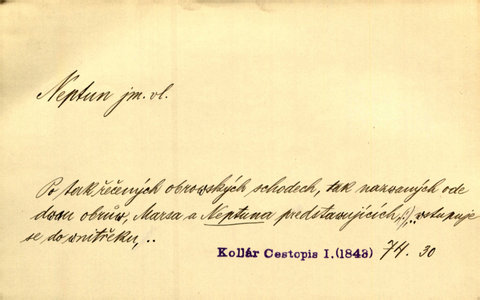 Neptun jm. vl.
Po tak řečených obrowských schodech, tak nazwaných ode
dwu obrůw, Marsa a Neptuna předstawujících, wstupuje
se do wnitřeku,..
Kollár Cestopis I. (1843) 74. 30